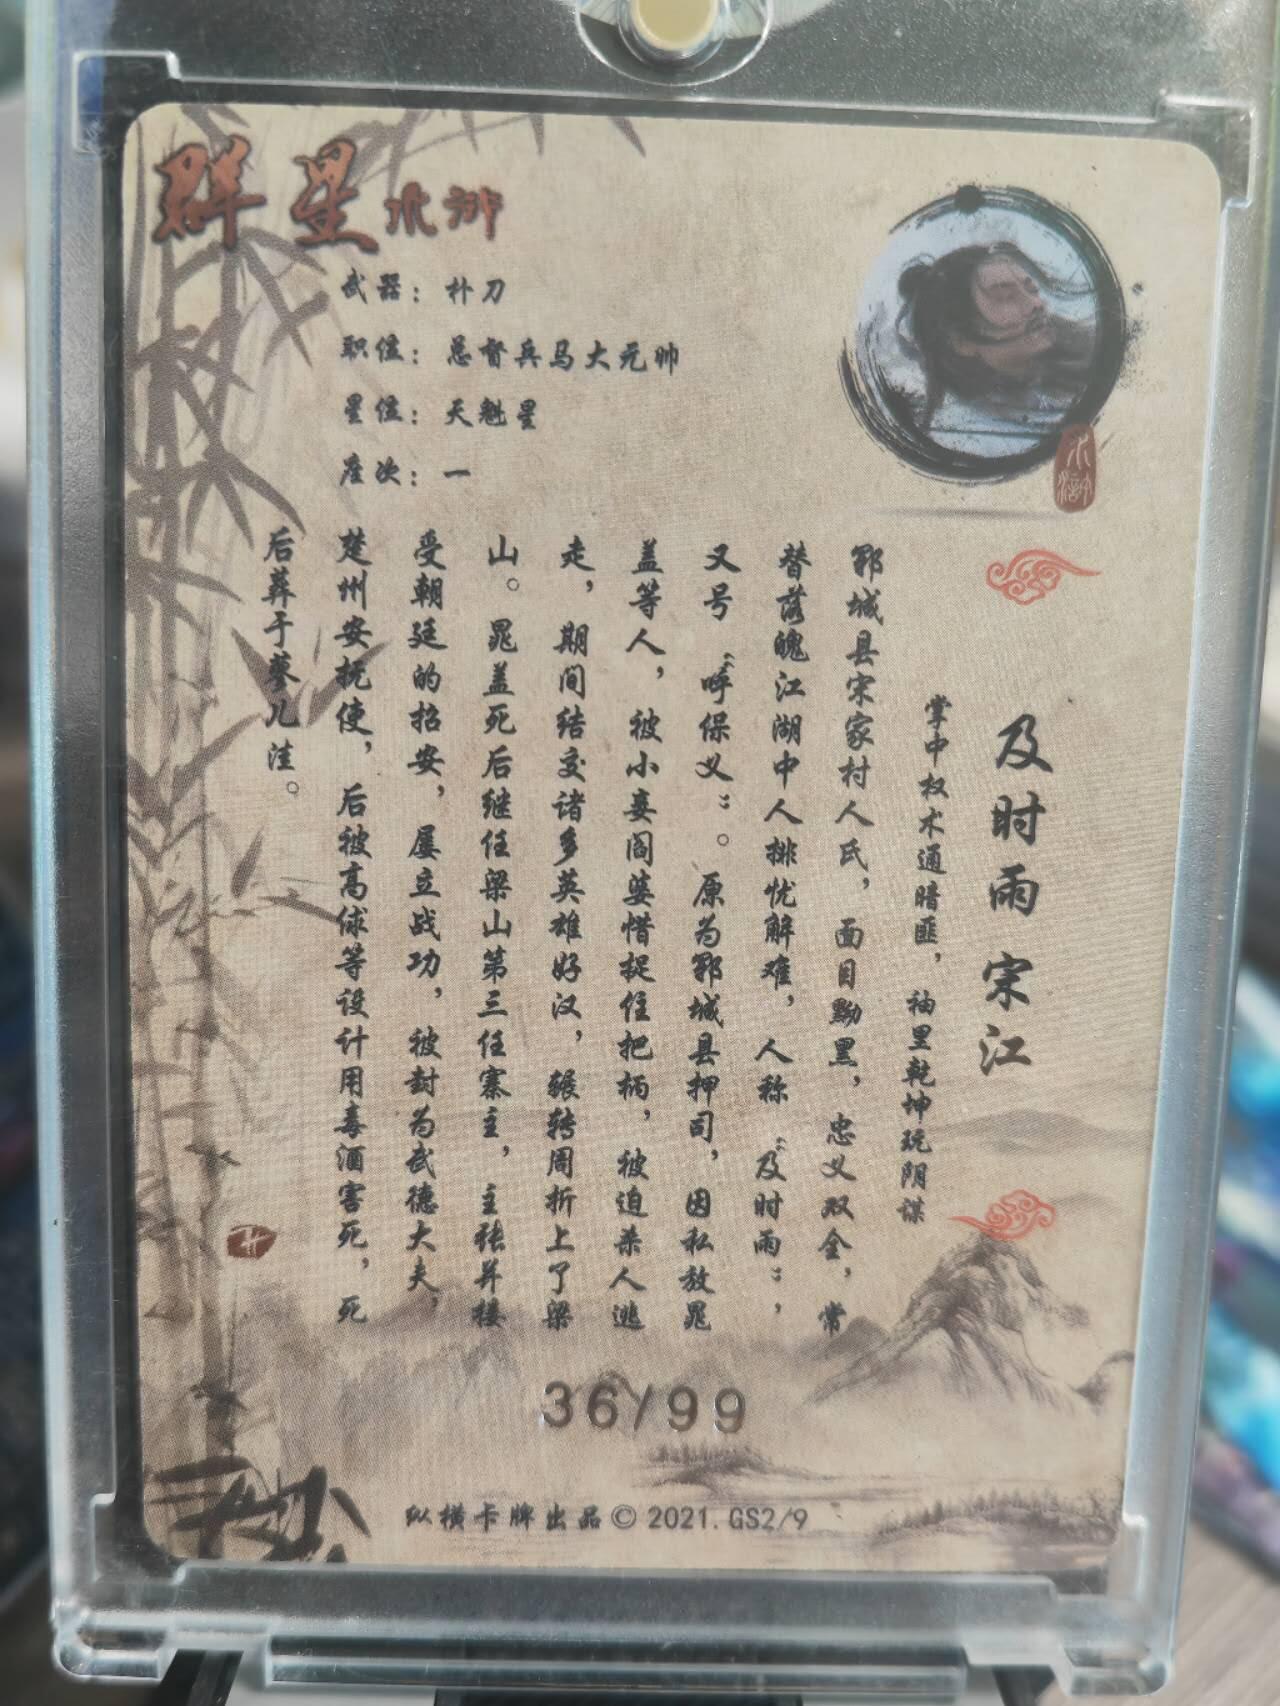 群星水浒
武器：朴刀
职位：总督兵马大元帅
星位：天魁星
座次：一
水浒
及时雨 宋江
掌中权术通暗匪，袖里乾坤玩阴谋
郓城县宋家村人氏，面目黝黑，忠义双全，常
替落魄江湖中人排忧解难，人称“及时雨”，
又号“呼保义”。原为郓城县押司，因私放晁
盖等人，被小妾阎婆惜捉住把柄，被迫杀人逃
走，期间结交诸多英雄好汉，辗转周折上了梁
山。晁盖死后继任梁山第三任寨主，主张并接
受朝廷的招安，屡立战功，被封为武德大夫，
楚州安抚使，后被高俅等设计用毒酒害死，死
后葬于蓼儿洼。
36/99
纵横卡牌出品©2021.GS2/9